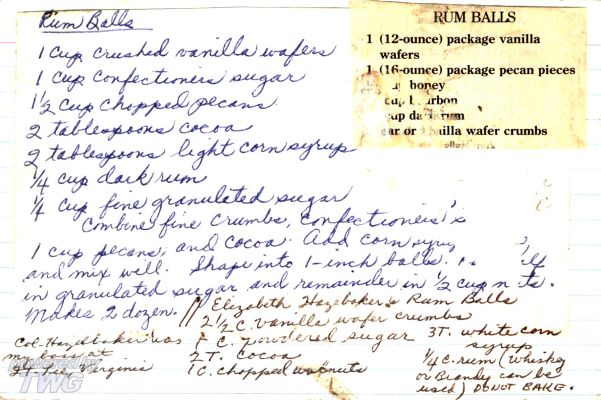 Rum Balls
1 cup crushed vanilla wafers
1 cup confectioners sugar
1 1/2 cup chopped pecans
2 tablespoons cocoa
2 tablespoons light corn syrup
1/4 cup dark rum
1/4 cup fine granulated sugar
Combine fine crumbs, confectioners's
1 cup pecans, and cocoa. Add corn syrup
and mix well. Shape into 1-inch balls.
in granulated sugar and remainder in 1/2 cup nuts.
Makes 2 dozen.
RUM BALLS
1 (12-ounce) package vanilla
wafers
1 (16-ounce) package pecan pieces
honey
cup
cup rum
or wafer crumbs
// Elizabeth Hazelbaker's Rum Balls
2 1/2 C. vanilla wafer crumbs
1 C. powdered sugar
2 T. cocoa
1 C. chopped walnuts
3T. white corn
syrup
1/4 C. rum (Whiskey
or Brandy can be
used) DO NOT BAKE.
Col. Hazelbaker was
my boss at
Ft. Lee, Virginia
POWERED BY
TWG